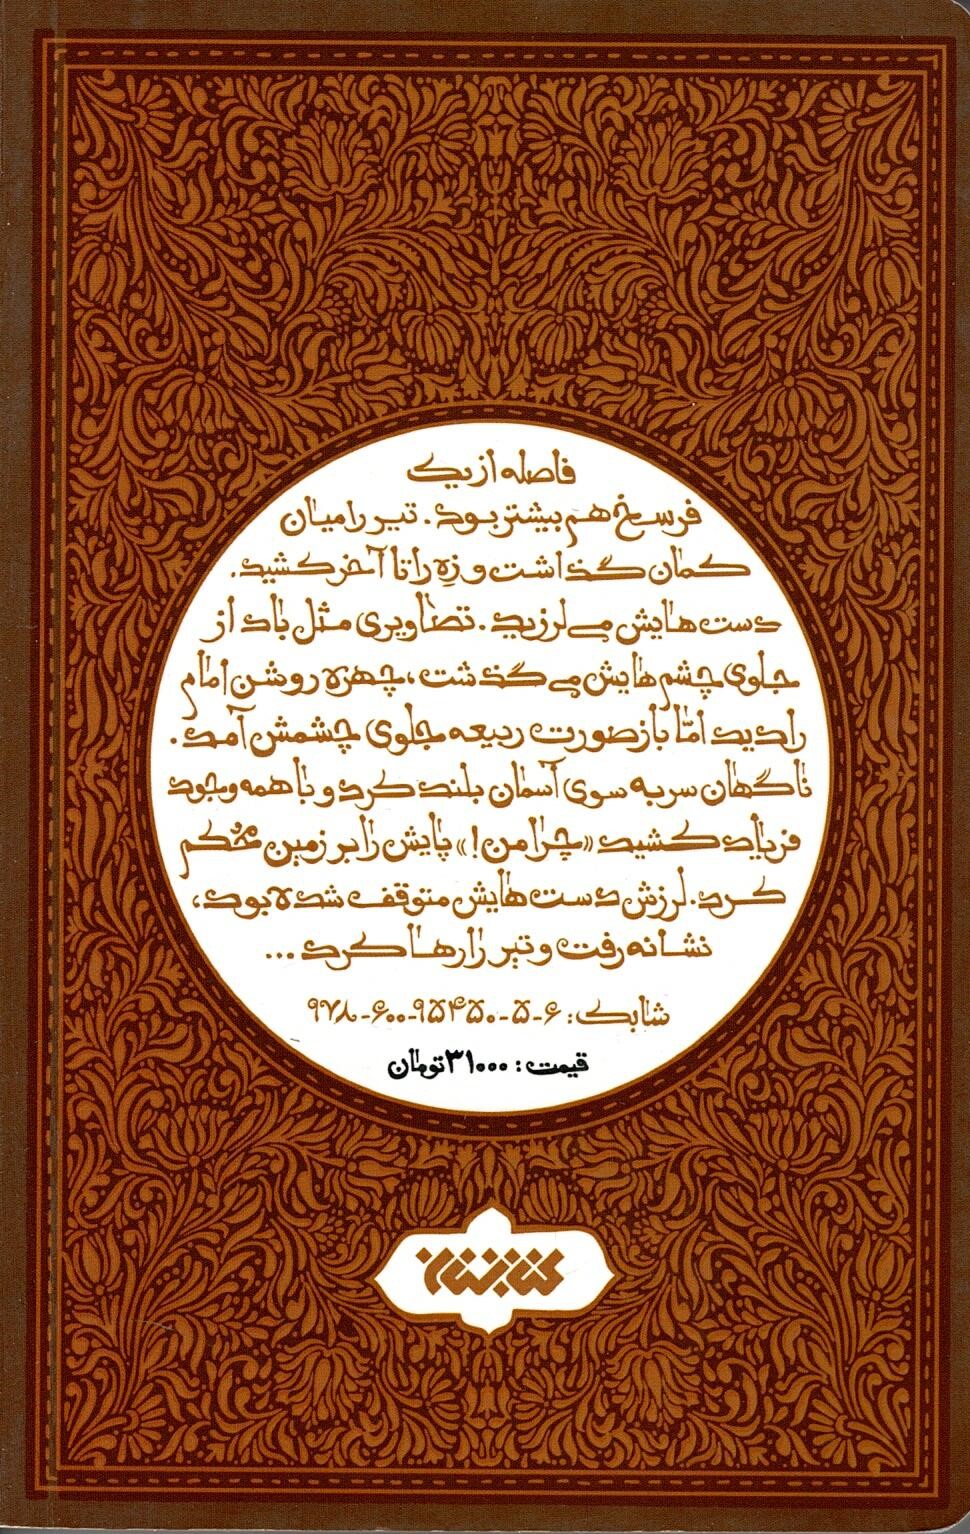 فاصله از یک
فرسخ هم بیشتر بود. تیر را میان
کمان گذاشت و زِه را تا آخر کشید.
دست‌هایش می‌لرزید. تصاویری مثل باد از
جلوی چشم‌هایش می‌گذشت، چهره روشن امام
را دید امّا باز صورت ربیعه جلوی چشمش آمد.
ناگهان سر به سوی آسمان بلند کرد و با همه وجود
فریاد کشید «چرا من!» پایش را بر زمین محکم
کرد. لرزش دست‌هایش متوقف شده بود،
نشانه رفت و تیر را رها کرد ...
شابک: ۶-۵-۹۵۴۵۰-۶۰۰-۹۷۸
قیمت: ۳۱۰۰۰ تومان
کتابستان